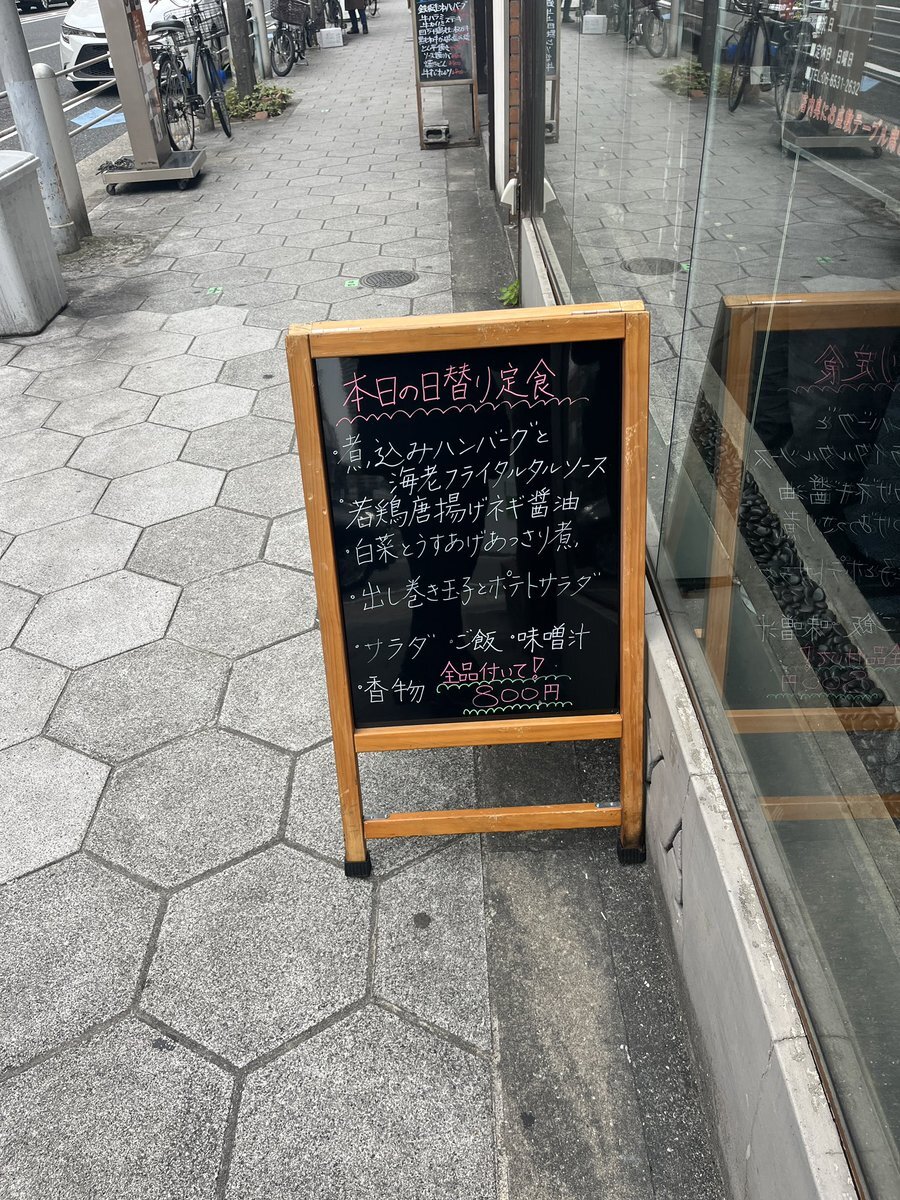 本日の日替り定食
・煮込みハンバーグと
海老フライタルタルソース
・若鶏唐揚げネギ醤油
・白菜とうすあげあっさり煮
・出し巻き玉子とポテトサラダ
・サラダ ・ご飯 ・味噌汁
・香物 全品付いて!
800円
定休日 日曜日
TEL.06-6531-2632